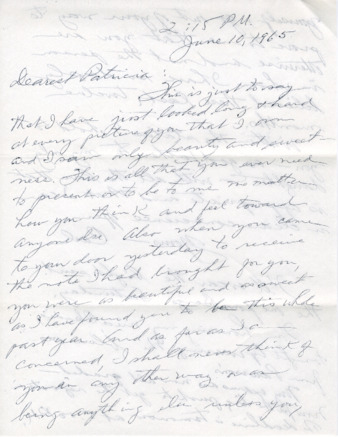 2:15 P.M.
June 10, 1965
Dearest Patricia:
This is just to say
that I have just looked long & hard
at every picture of you that I own
and I saw only beauty and sweet
ness. This is all that you ever need
to present or to be to me no matter
how you think and feel toward
anyone else. Also when you came
to your door yesterday to receive
the note I had brought for you,
you were as beautiful and as sweet
as I have found you to be this whole
past year. And as far as I a
concerned, I shall never think of
you in any other way nor as
being anything else unless you,